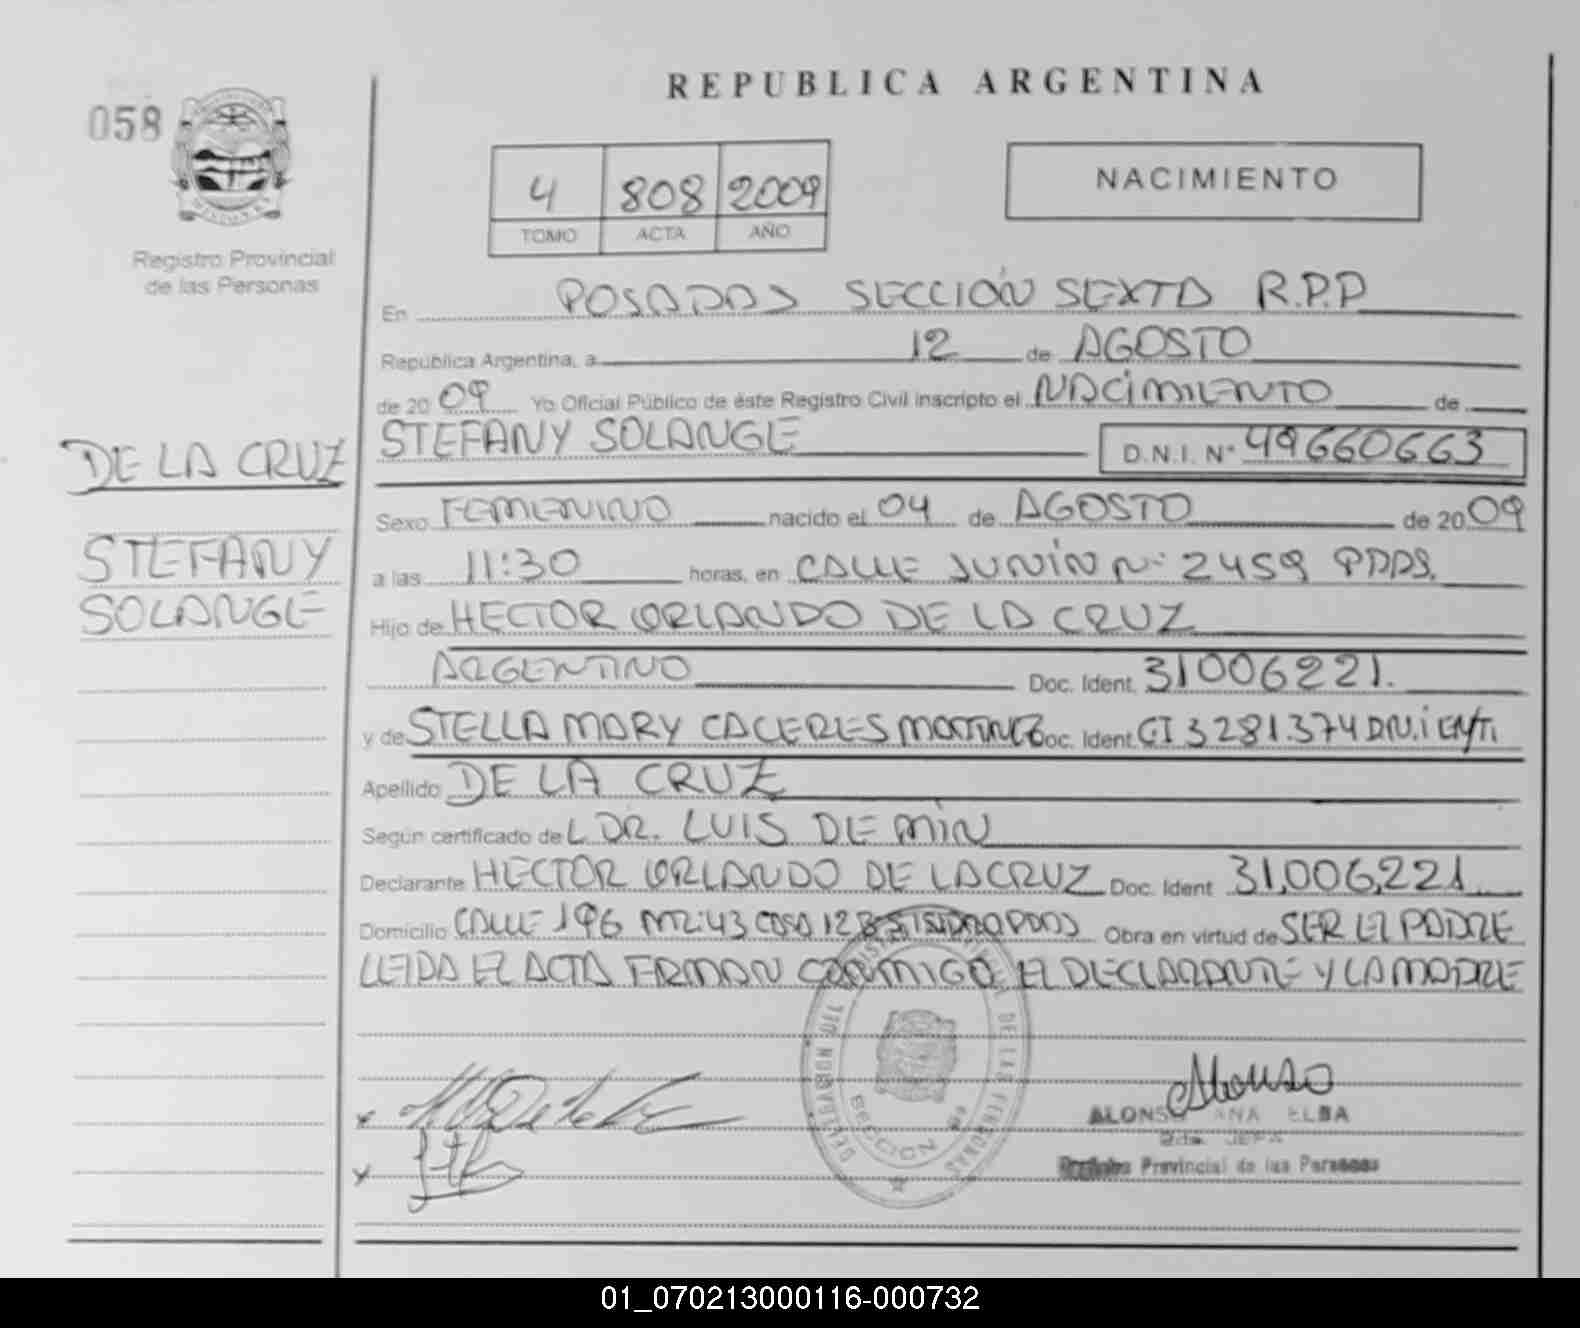 REPUBLICA ARGENTINA
058
4 808 2009
TOMO ACTA AÑO
NACIMIENTO
MISIONES
Registro Provincial
de las Personas
En POSADAS SECCIÓN SEXTA R.P.P
República Argentina, a 12 de AGOSTO
de 20 09 Yo Oficial Público de éste Registro Civil inscripto el NACIMIENTO de
STEFANY SOLANGE D.N.I. N° 49660663
DE LA CRUZ
STEFANY
SOLANGE
Sexo FEMENINO nacido el 04 de AGOSTO de 20 09
a las 11:30 horas, en CALLE JUNÍN Nº 2459 PDAS.
Hijo de HECTOR ORLANDO DE LA CRUZ
ARGENTINO Doc. Ident. 31006221.
y de STELLA MARY CACERES MARTINEZ Doc. Ident. CI 3281.374
Apellido DE LA CRUZ
Según certificado de L DR. LUIS DE MIN
Declarante HECTOR ORLANDO DE LA CRUZ Doc. Ident 31,006,221
Domicilio CALLE 196 MZ:43 CASA 12 Obra en virtud de SER EL PADRE
LEIDA EL ACTA FIRMAN CONMIGO EL DECLARANTE Y LA MADRE
DELEGACION DEL REGISTRO PROVINCIAL DE LAS PERSONAS
SECCION 6ª
Alonso
ALONSO ANA ELBA
2da. JEFA
Registro Provincial de las Personas
01_070213000116-000732